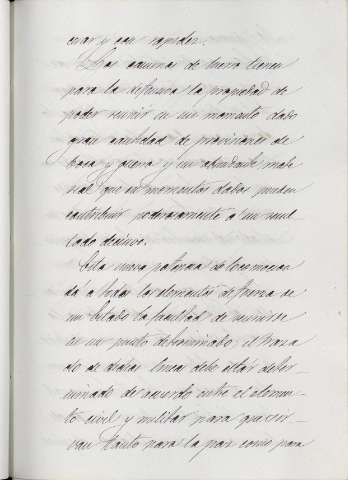 char y con rapidez.
Los caminos de hierro tienen
para la defensa la propiedad de
poder reunir en un momento dado
gran cantidad de provisiones de
boca y guerra y un abundante mate-
rial que en momentos dados pueden
contribuir poderosamente a un resul-
tado decisivo.
Esta nueva potencia de locomocion
dá a todos los elementos de fuerza de
un Estado la facultad de reunirse
en un punto determinado; el traza-
do de dichas lineas debe estar deter-
minado de acuerdo entre el elemen-
to civil y militar para que sir-
van tanto para la paz como para